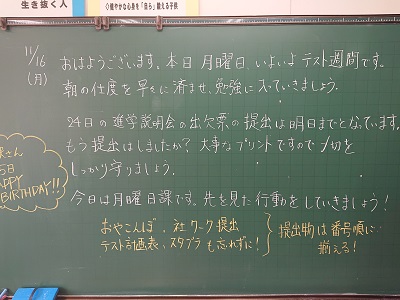 生き抜く人
◇健やかな心身を「自ら」鍛える子供
11/16
(月)
おはようございます。本日月曜日、いよいよテスト週間です。
朝の仕度を早々に済ませ、勉強に入っていきましょう。
24日の進学説明会の出欠票の提出は明日までとなっています。
もう提出はしましたか？大事なプリントですので〆切を
しっかり守りましょう。
今日は月曜日課です。先を見た行動をしていきましょう！
さん
5日
APPY
BIRTHDAY!!
おやこんぼ、社ワーク提出
テスト計画表、スタプラも忘れずに！
提出物は番号順に
揃える！